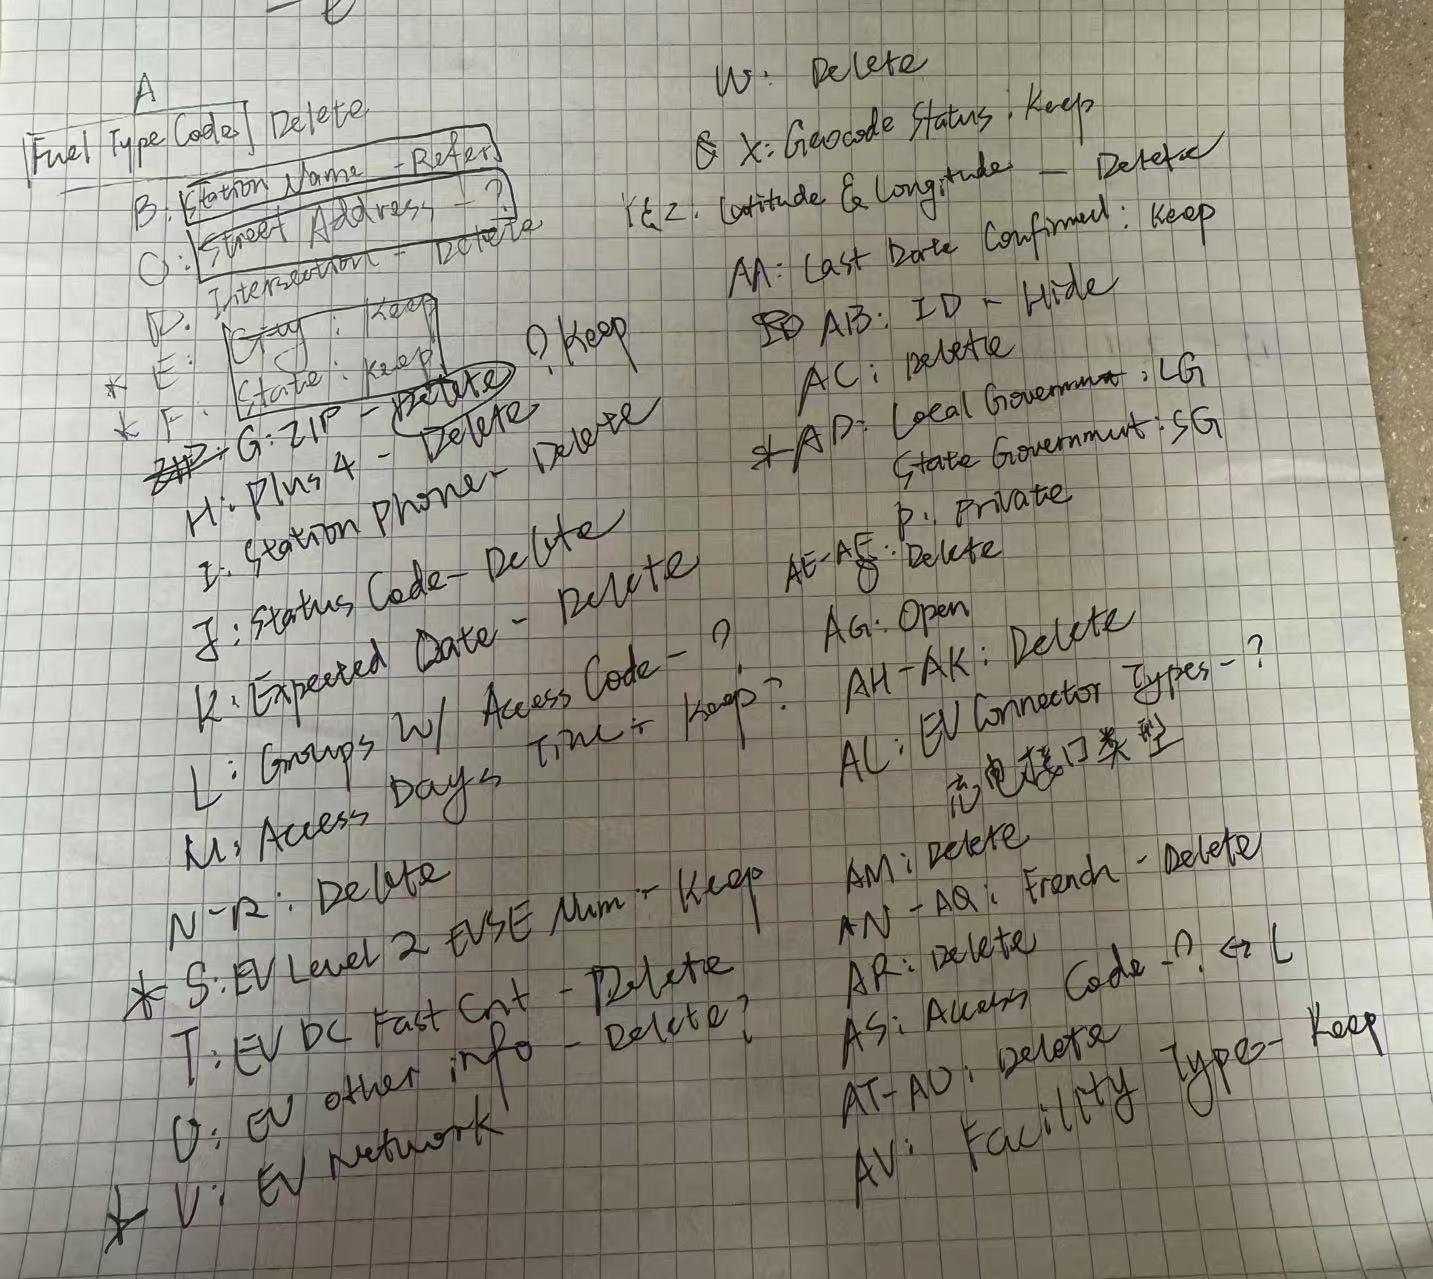 A
Fuel Type Code Delete
B: Station Name - Refer
C: Street Address - ?
D. Intersection - Delete
* E: City: Keep
* F. State: Keep
G: ZIP - Delete ? Keep
H: Plus 4 - Delete
I: Station Phone - Delete
J: Status Code - Delete
K: Expected Date - Delete
L: Groups W/ Access Code - ?
M: Access Days Time - Keep?
N-R: Delete
* S: EV Level 2 EVSE Num - Keep
T: EV DC Fast Cnt - Delete
U: EV other info - Delete?
* V: EV Network
W: Delete
X: Geocode Status: Keep
Y&Z: Latitude & Longitude - Delete
AA: Last Date Confirmed: Keep
AB: ID - Hide
AC: Delete
* AD: Local Government: LG
State Government: SG
P: Private
AE-AF: Delete
AG: Open
AH-AK: Delete
AL: EV Connector Types - ?
充电接口类型
AM: Delete
AN-AQ: French - Delete
AR: Delete
AS: Access Code - ? ↔ L
AT-AU: Delete
AV: Facility Type - Keep